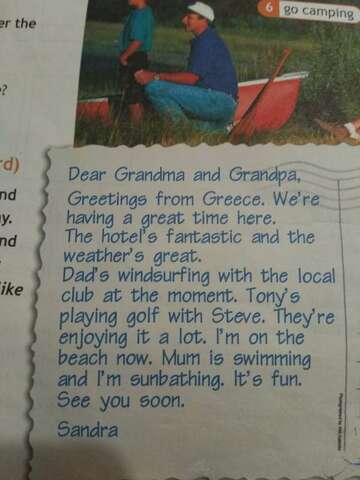 6 go camping
er the
e?
rd)
nd
y.
nd
like
Dear Grandma and Grandpa,
Greetings from Greece. We're
having a great time here.
The hotel's fantastic and the
weather's great.
Dad's windsurfing with the local
club at the moment. Tony's
playing golf with Steve. They're
enjoying it a lot. I'm on the
beach now. Mum is swimming
and I'm sunbathing. It's fun.
See you soon.
Sandra